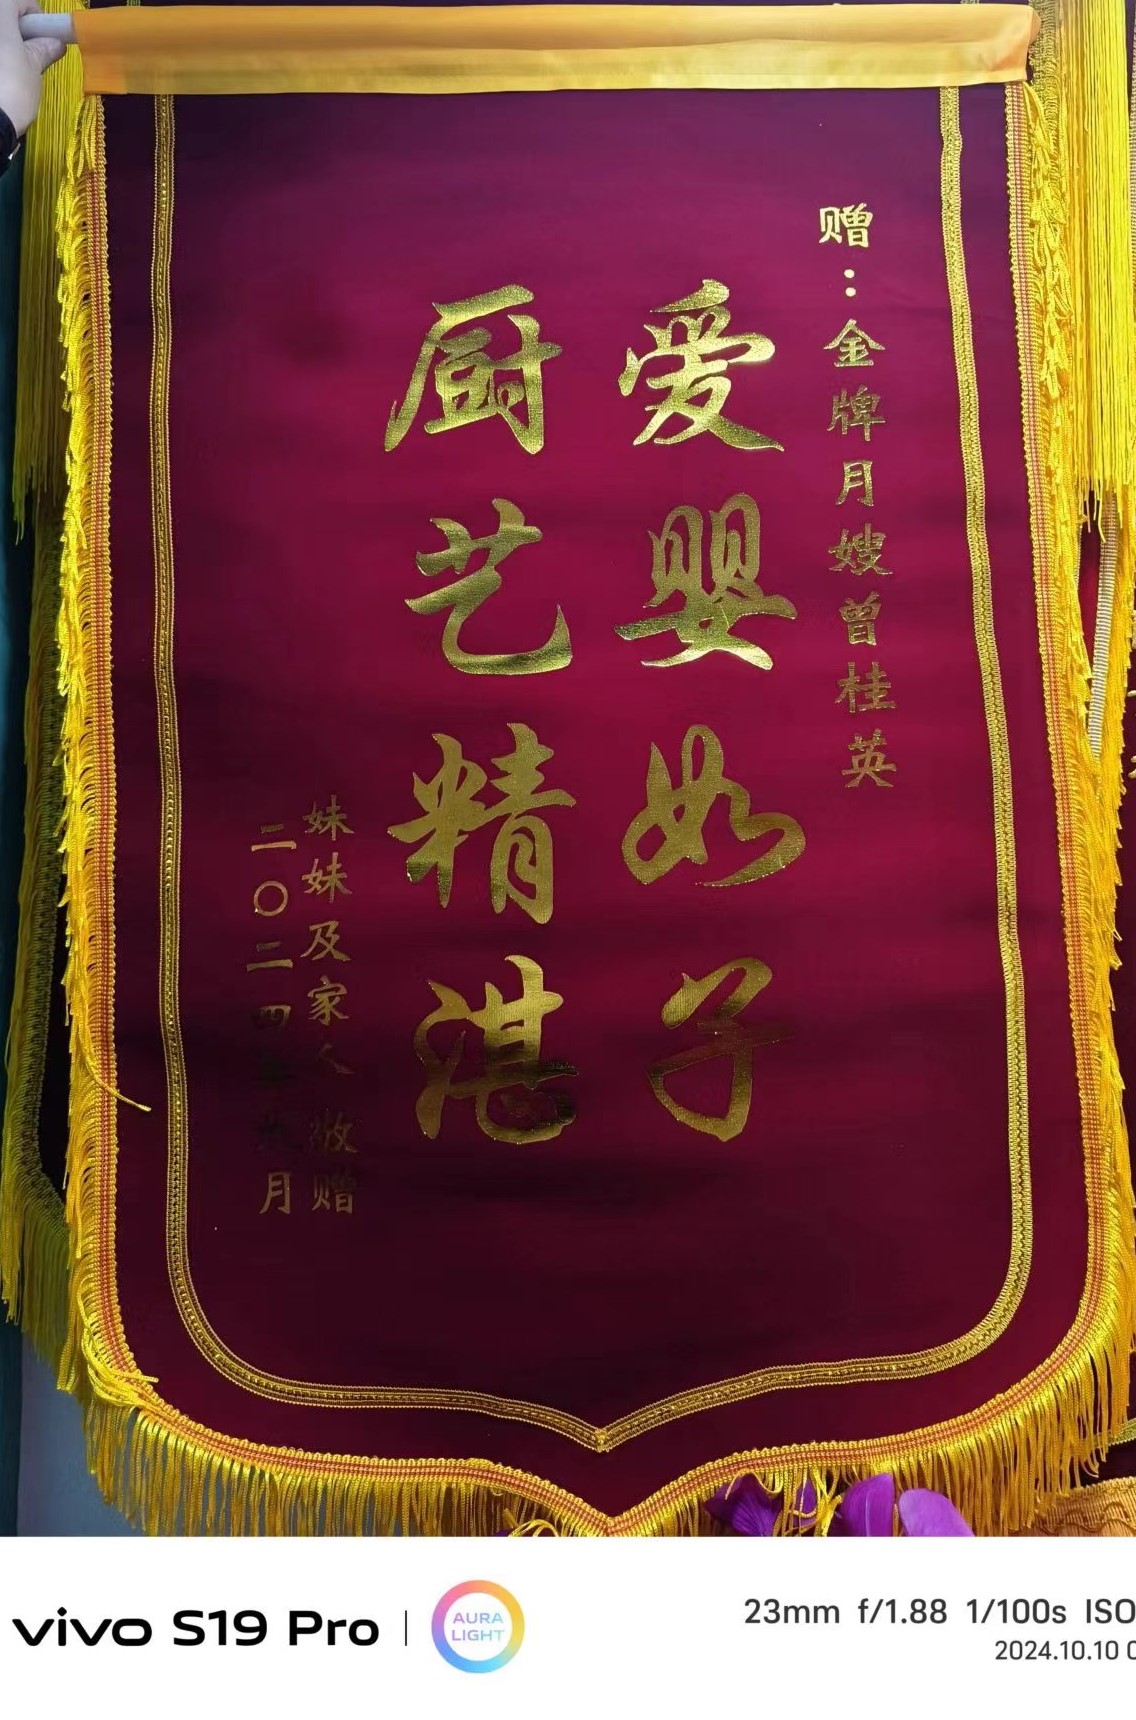 赠：金牌月嫂曾桂英
爱婴如子
厨艺精湛
妹妹及家人 敬赠
二〇二四年九月
vivo S19 Pro
AURA
LIGHT
23mm f/1.88 1/100s ISO
2024.10.10 0